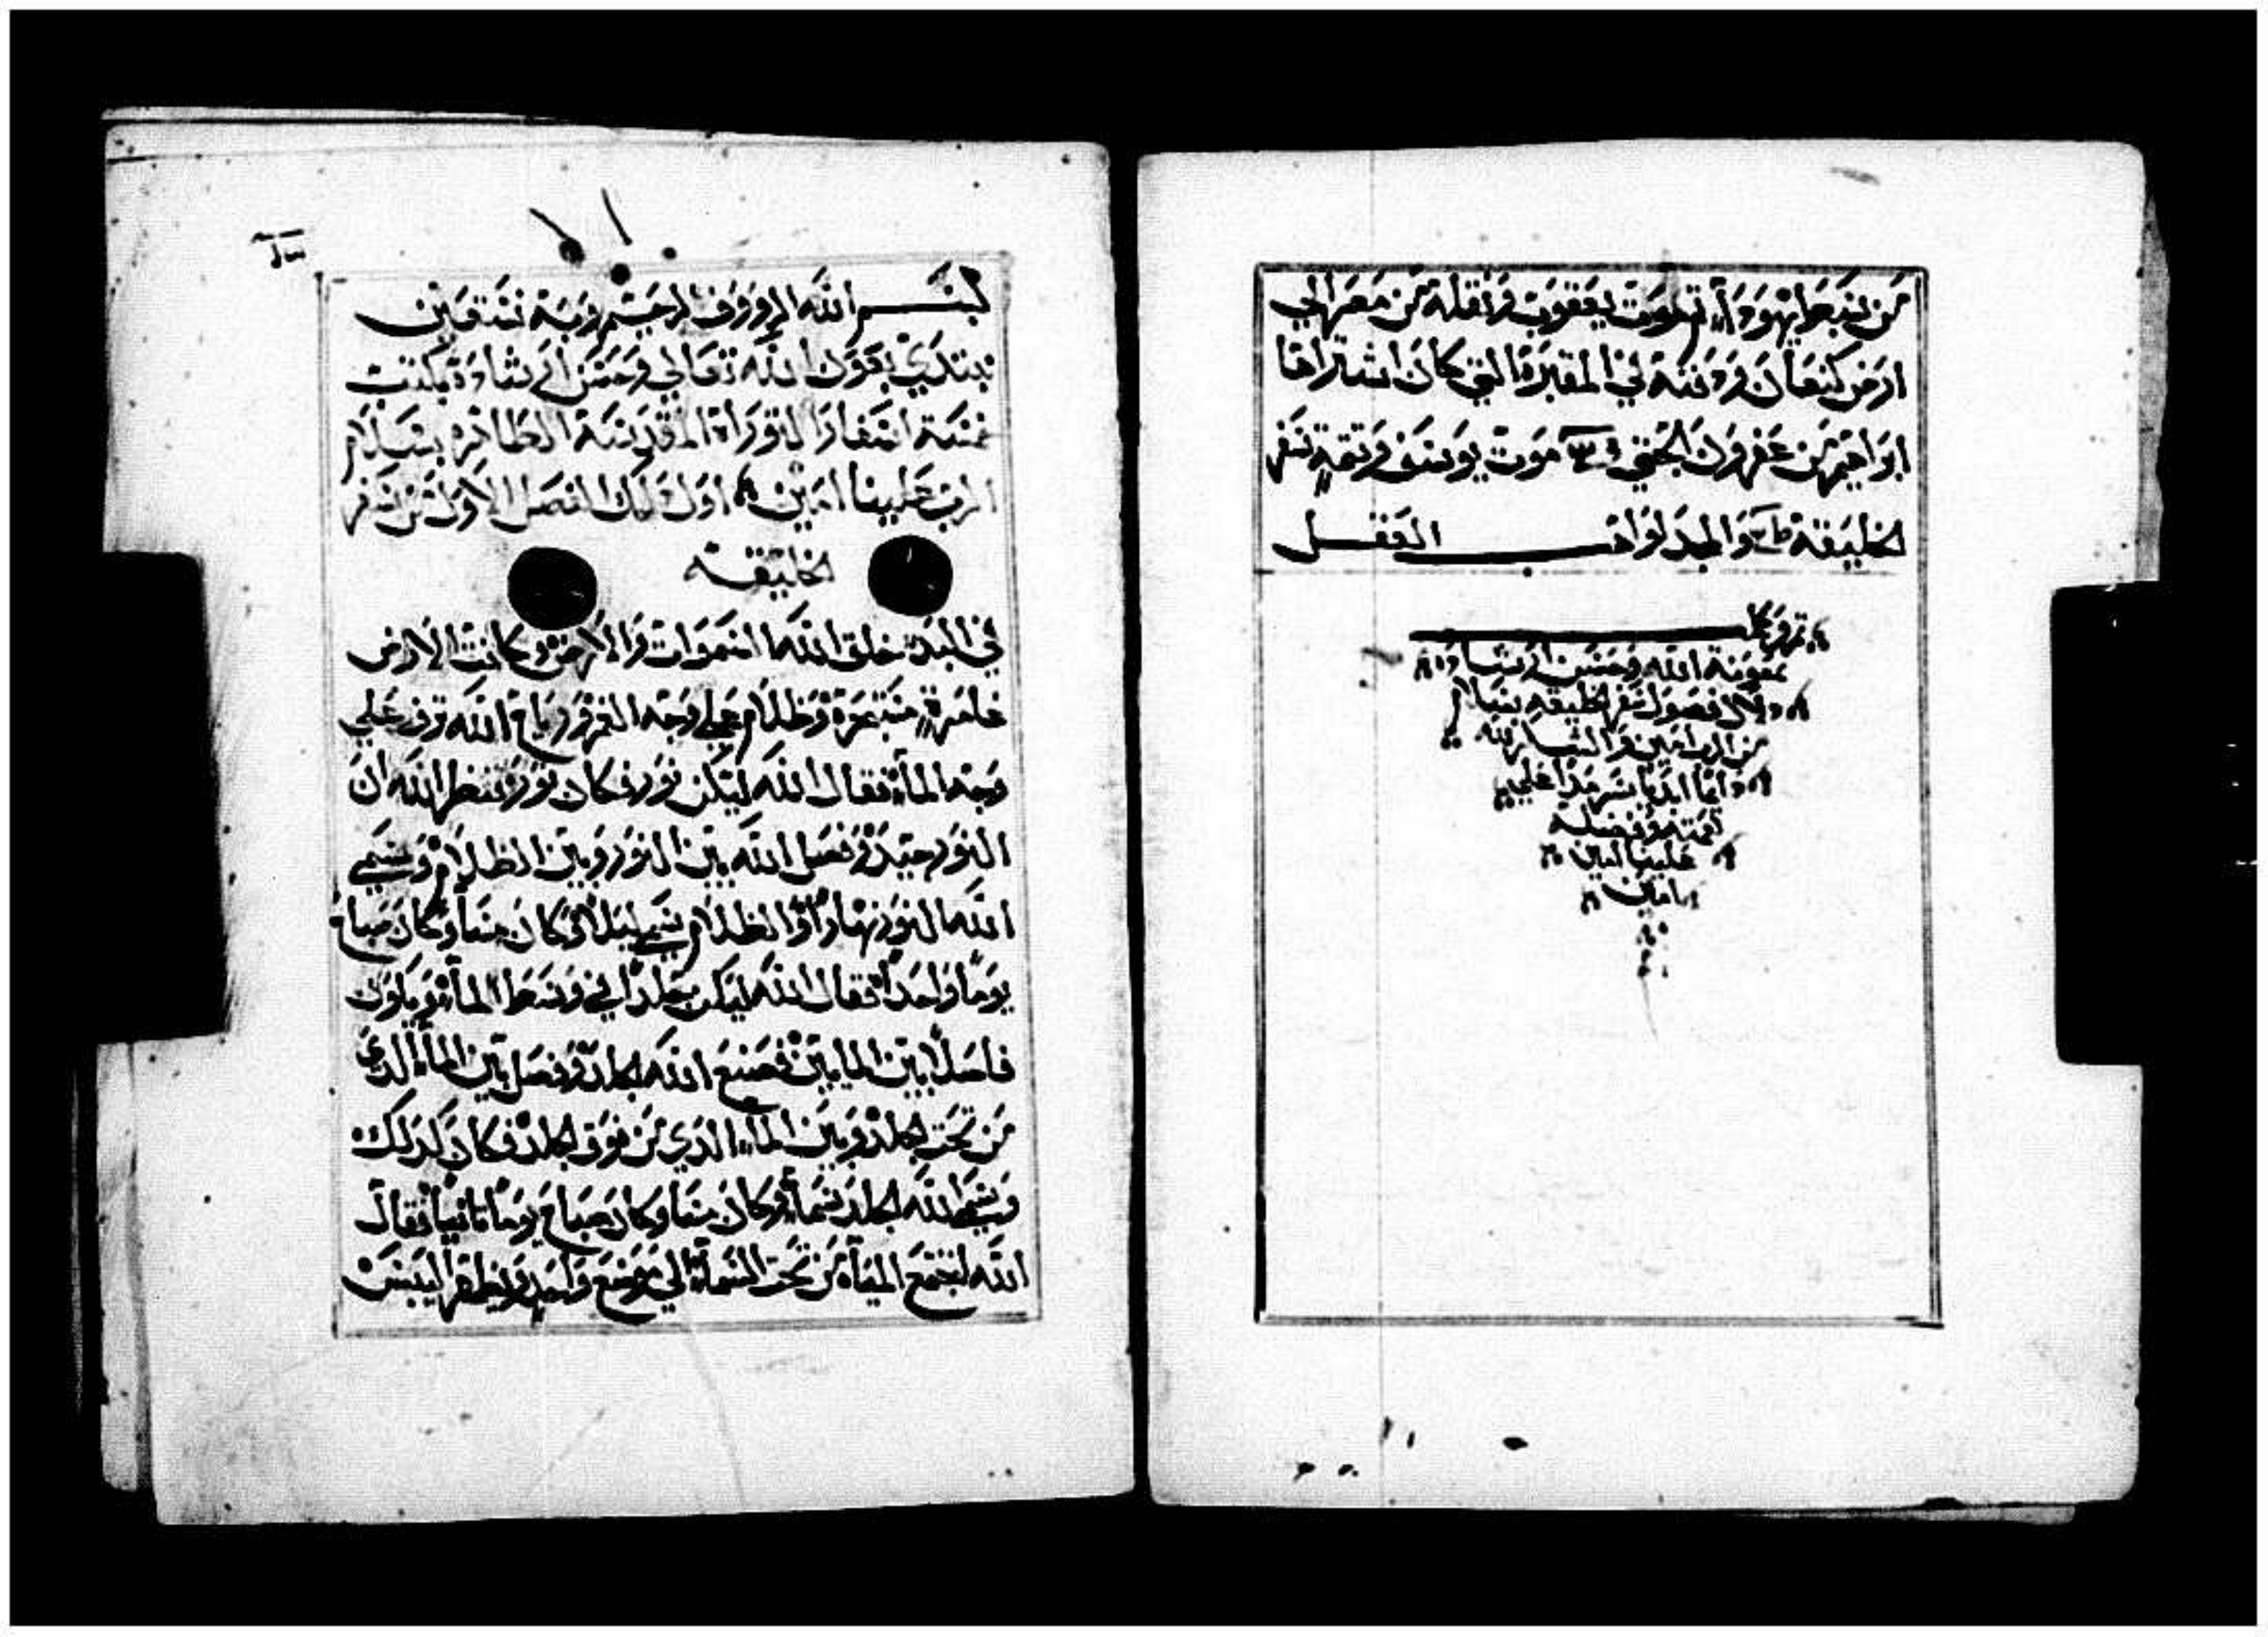 من سبط يهودا تم موت يعقوب ونقلة من مصر الي
ارض كنعان ودفنه في المقبرة التي كان اشتراها
ابراهيم من عفرون الحتي موت يوسف وبقية سفر
الخليقة والمجد لواهب العقل
بمعونة الله وحسن ارشاده
دلال فصول سفر الخليقه بسلام
من الرب امين والشكر لله
دايما ابديا سرمدا علي
نعمته وفضله
علينا امين
امين
بسم الله الرووف الرحيم وبه نستعين
نبتدي بعون الله تعالي وحسن ارشاده بكتب
خمسة اسفار التوراة المقدسة الطاهرة بسلام
الرب علينا امين اول ذلك الفصل الاول من سفر
الخليقة
في البدء خلق الله السموات والارض وكانت الارض
غامرة مستبحرة وظلام علي وجه الغمر ورياح الله ترف علي
وجه الماء فقال الله ليكن نور فكان نور فنظر الله ان
النور جيد وفصل الله بين النور وبين الظلام وسمي
الله النور نهارا والظلام سمي ليلا وكان مسا وكان صباح
يوما واحدا فقال الله ليكن جلدا في وسط الماء ويكون
فاصلا بين المايين فصنع الله الجلد وفصل بين الماء الدي
من تحت الجلد وبين الماء الدي من فوق الجلد فكان كدلك
وسمي الله الجلد سماء وكان مسا وكان صباح يوما ثانيا فقال
الله لتجتمع المياه من تحت السماء الي موضع واحد وليظهر اليبس